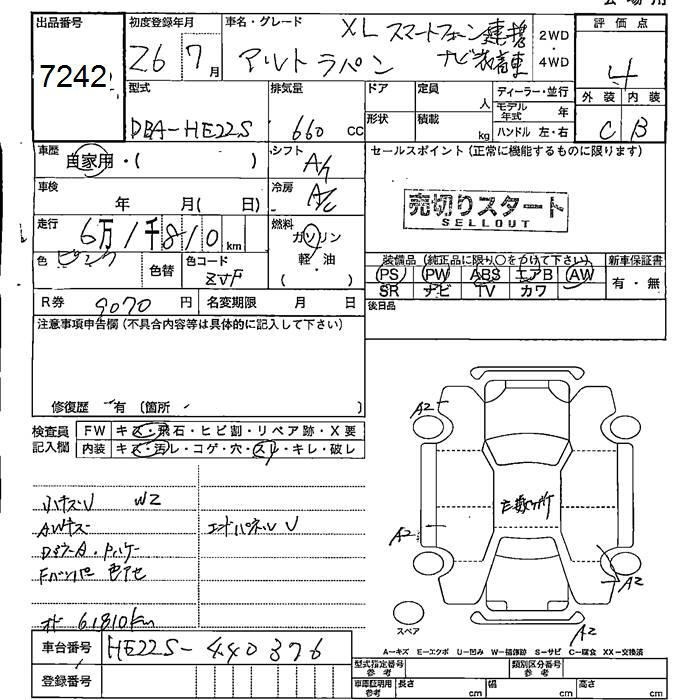 会場用
出品番号
7242
初度登録年月
26 7月
車名・グレード
XL スマートフォン連携
ナビ装着車
アルト ラパン
2WD
4WD
評価点
4
外装 内装
C B
型式
DBA-HE22S
排気量
660 cc
ドア
定員
人
形状
積載
kg
ディーラー・並行
モデル年式 年
ハンドル 左・右
車歴
自家用・( )
シフト
A/T
セールスポイント(正常に機能するものに限ります)
売切りスタート
SELLOUT
車検
年 月( 日)
冷房
A/C
走行
6万1千810km
燃料
ガソリン
軽・油
( )
色
ピンク
色替
色コード
ZVF
装備品(純正品に限り○をつけて下さい)
PS PW ABS エアB AW
SR ナビ TV カワ
新車保証書
有・無
R券 9070円
名変期限 月 日
後日品
注意事項申告欄(不具合内容等は具体的に記入して下さい)
修復歴 有(箇所 )
検査員
記入欄
FW キズ・飛石・ヒビ割・リペア跡・X要
内装 キズ・汚レ・コゲ・穴・スレ・キレ・破レ
小キズU W2
AWキズ
エンドパネルU
Fバンパー色アセ
メーター 61810km
A2
A2
A2
A2
スペア
A-キズ E-エクボ U-凹み W-補修跡 S-サビ C-腐食 XX-交換済
車台番号
HE22S-440376
登録番号
型式指定番号
参考
類別区分番号
参考
車庫証明用
参考
長さ cm 幅 cm 高さ cm